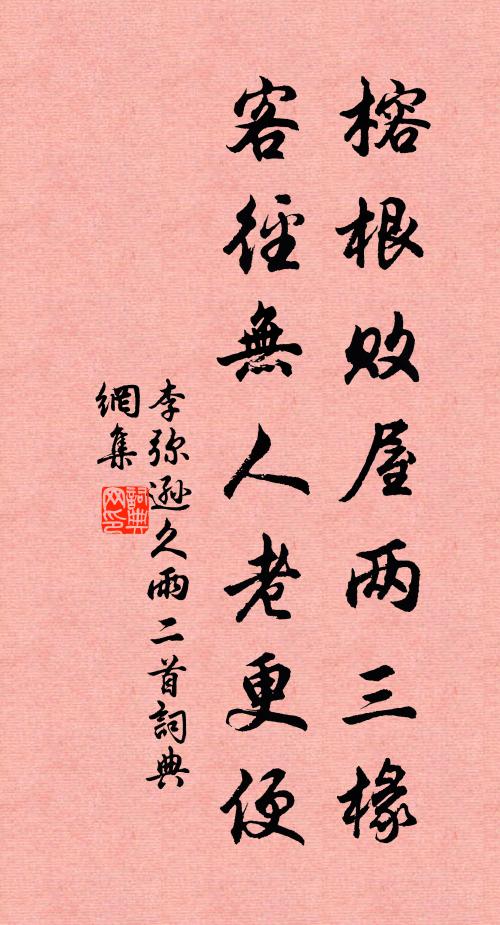 榕根敗屋両三椽
客徑無人老更便
李弥遜久雨二首詞典
網集
詞典
网印